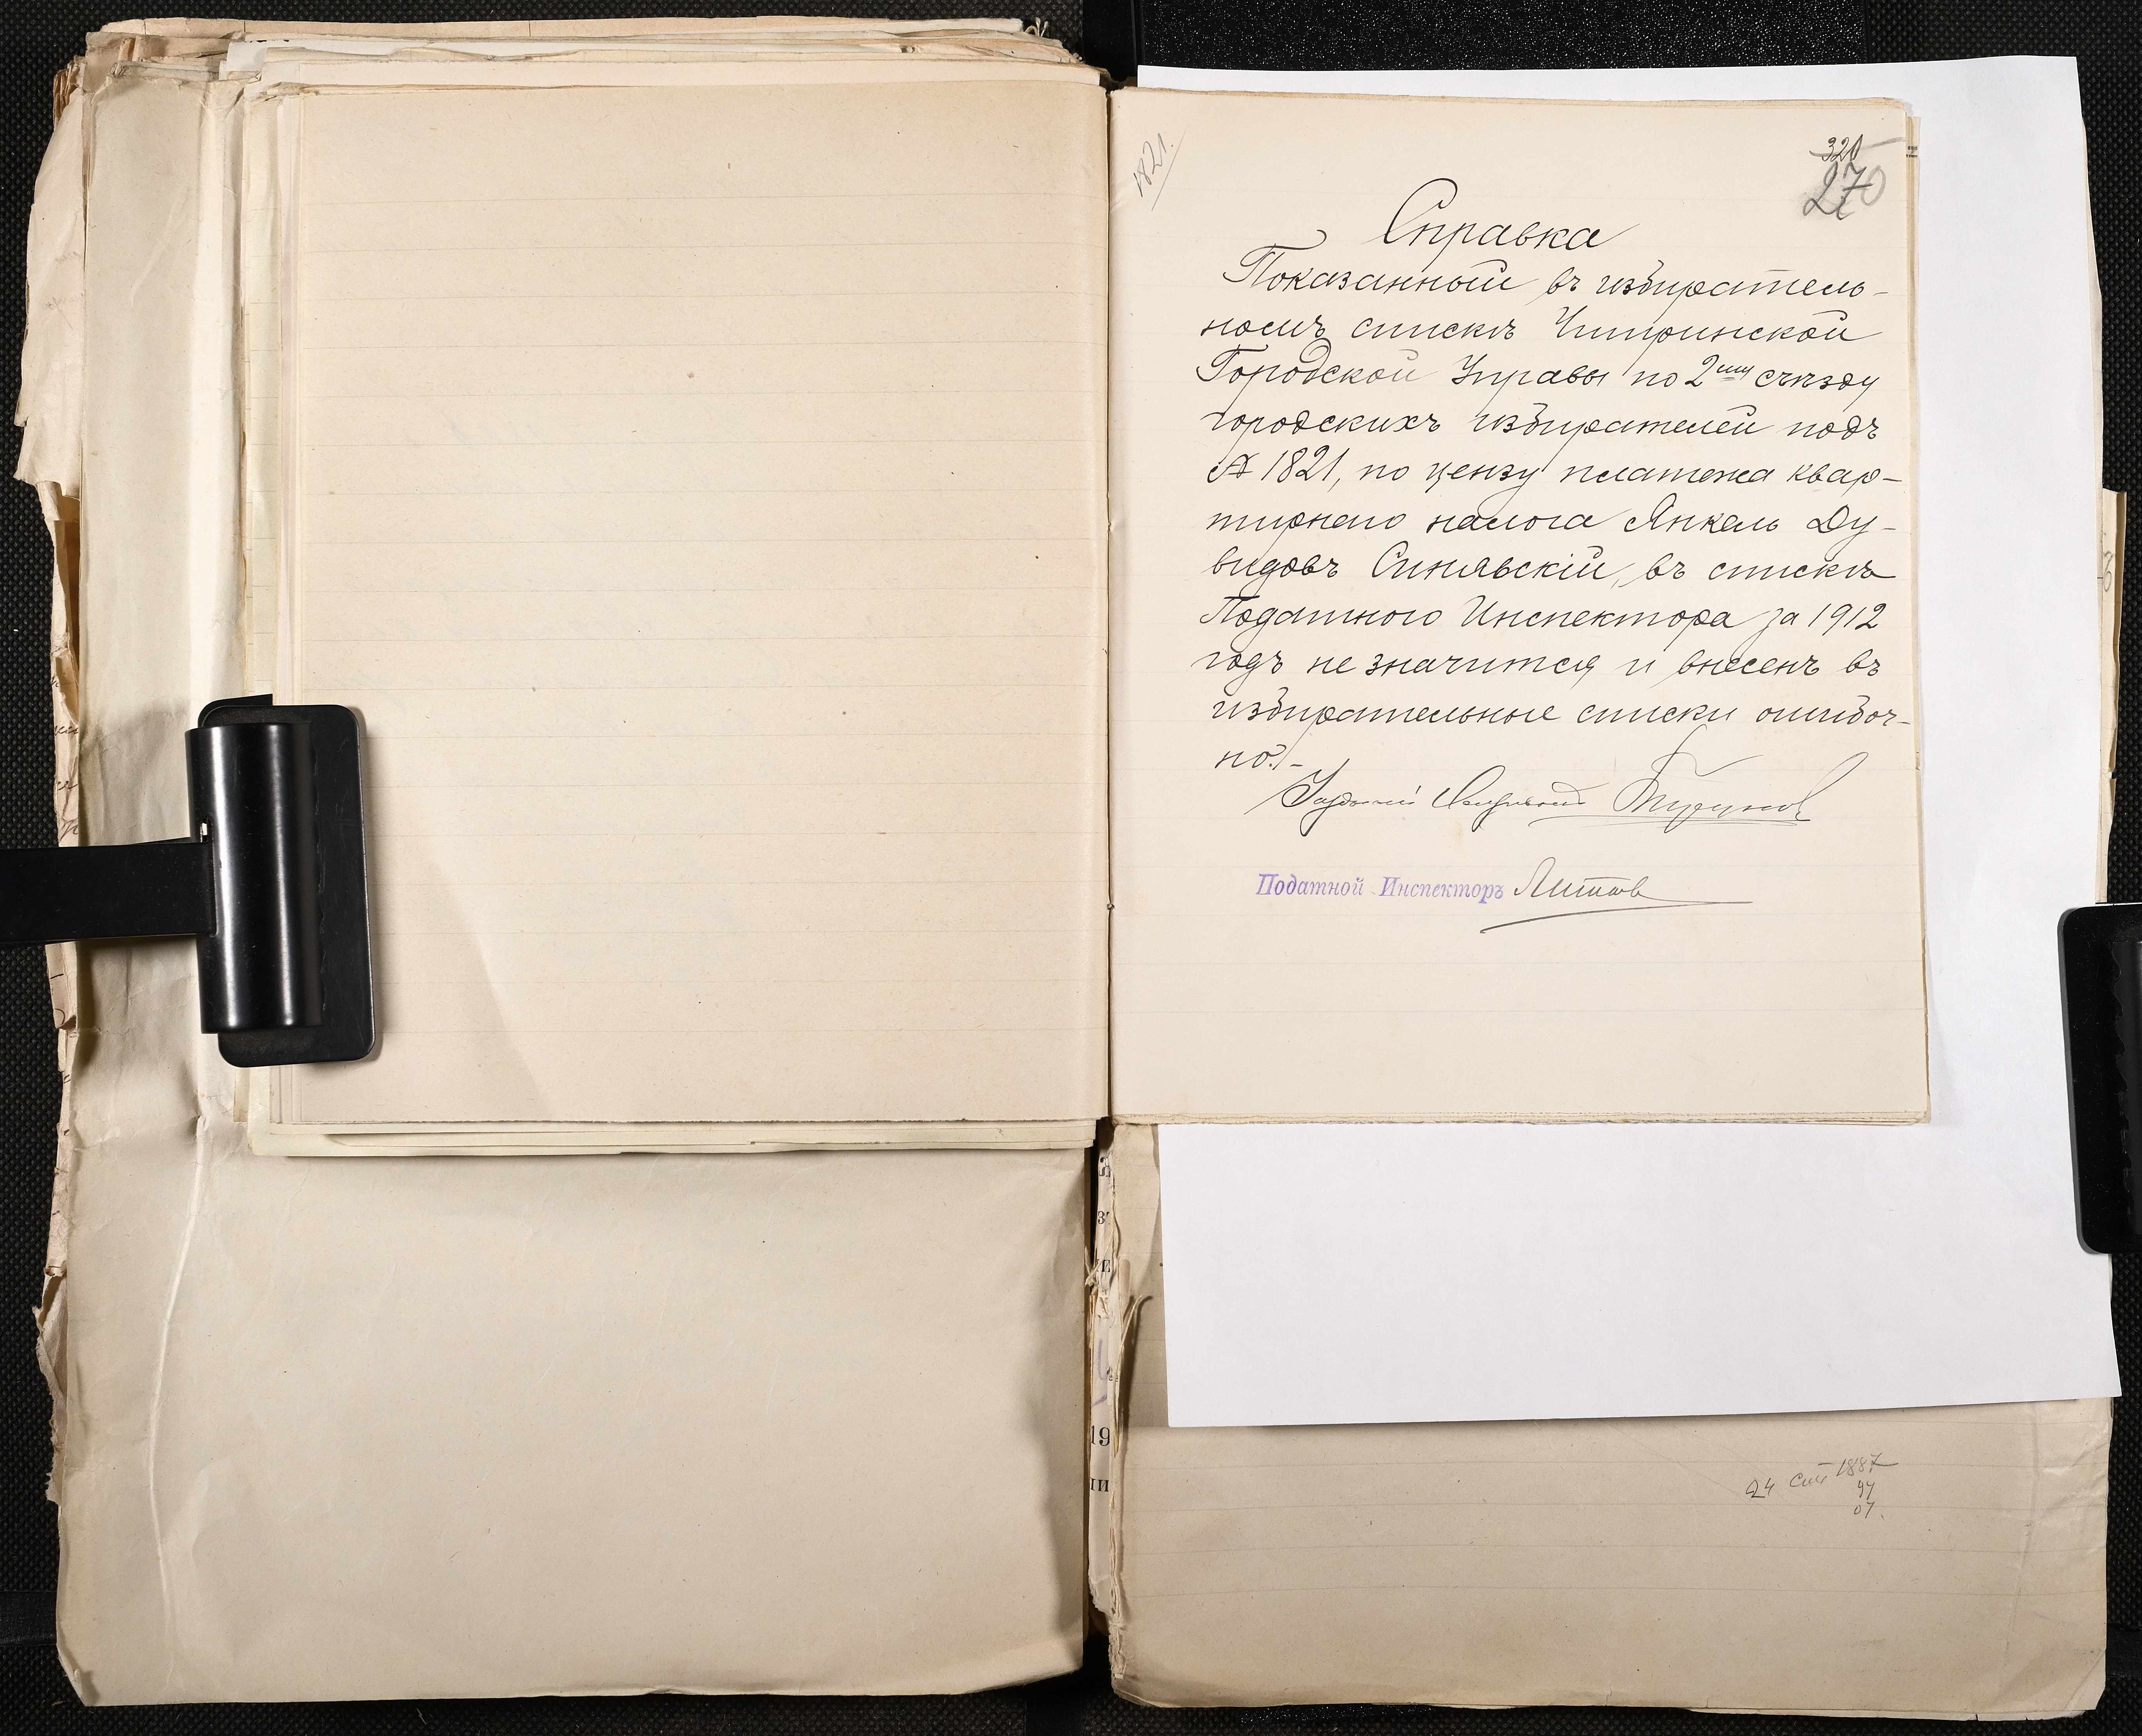 1821.
320
270
Справка
Показанный въ избиратель-
номъ спискѣ Читинской
Городской Управы по 2му съѣзду
городскихъ избирателей подъ
№ 1821, по цензу платежа квар-
тирнаго налога Янкель Ду-
видовъ Синявскій, въ спискѣ
Податного Инспектора за 1912
годъ не значится и внесенъ въ
избирательные списки ошибоч-
но.-
Податной Инспекторъ
19
ІИ
24 1887
97
07.